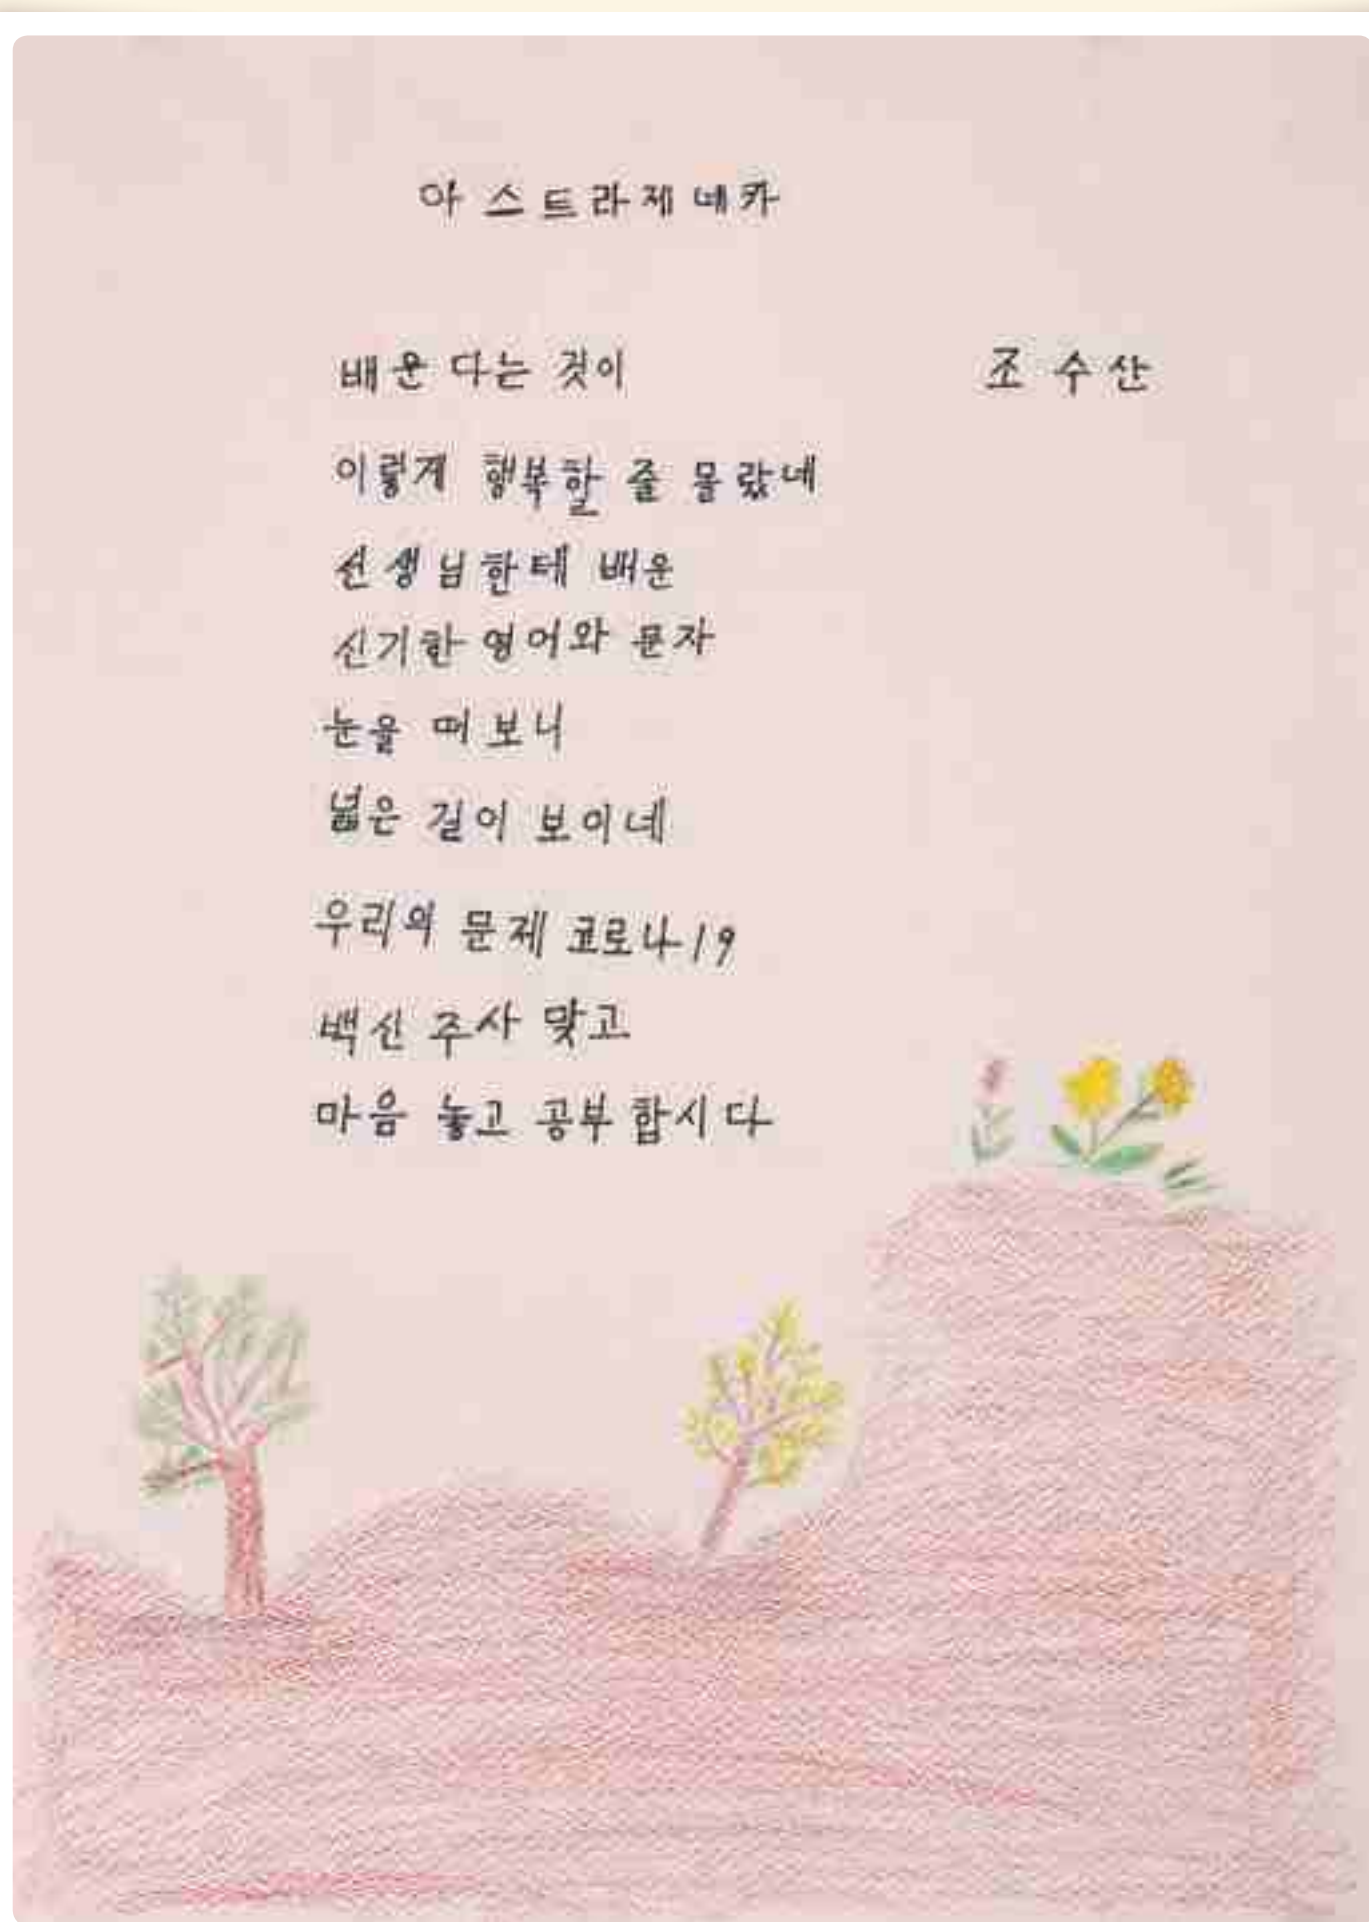 아스트라제네카
배운다는 것이
조수산
이렇게 행복할 줄 몰랐네
선생님한테 배운
신기한 영어와 문자
눈을 떠보니
넓은 길이 보이네
우리의 문제 코로나19
백신 주사 맞고
마음 놓고 공부합시다